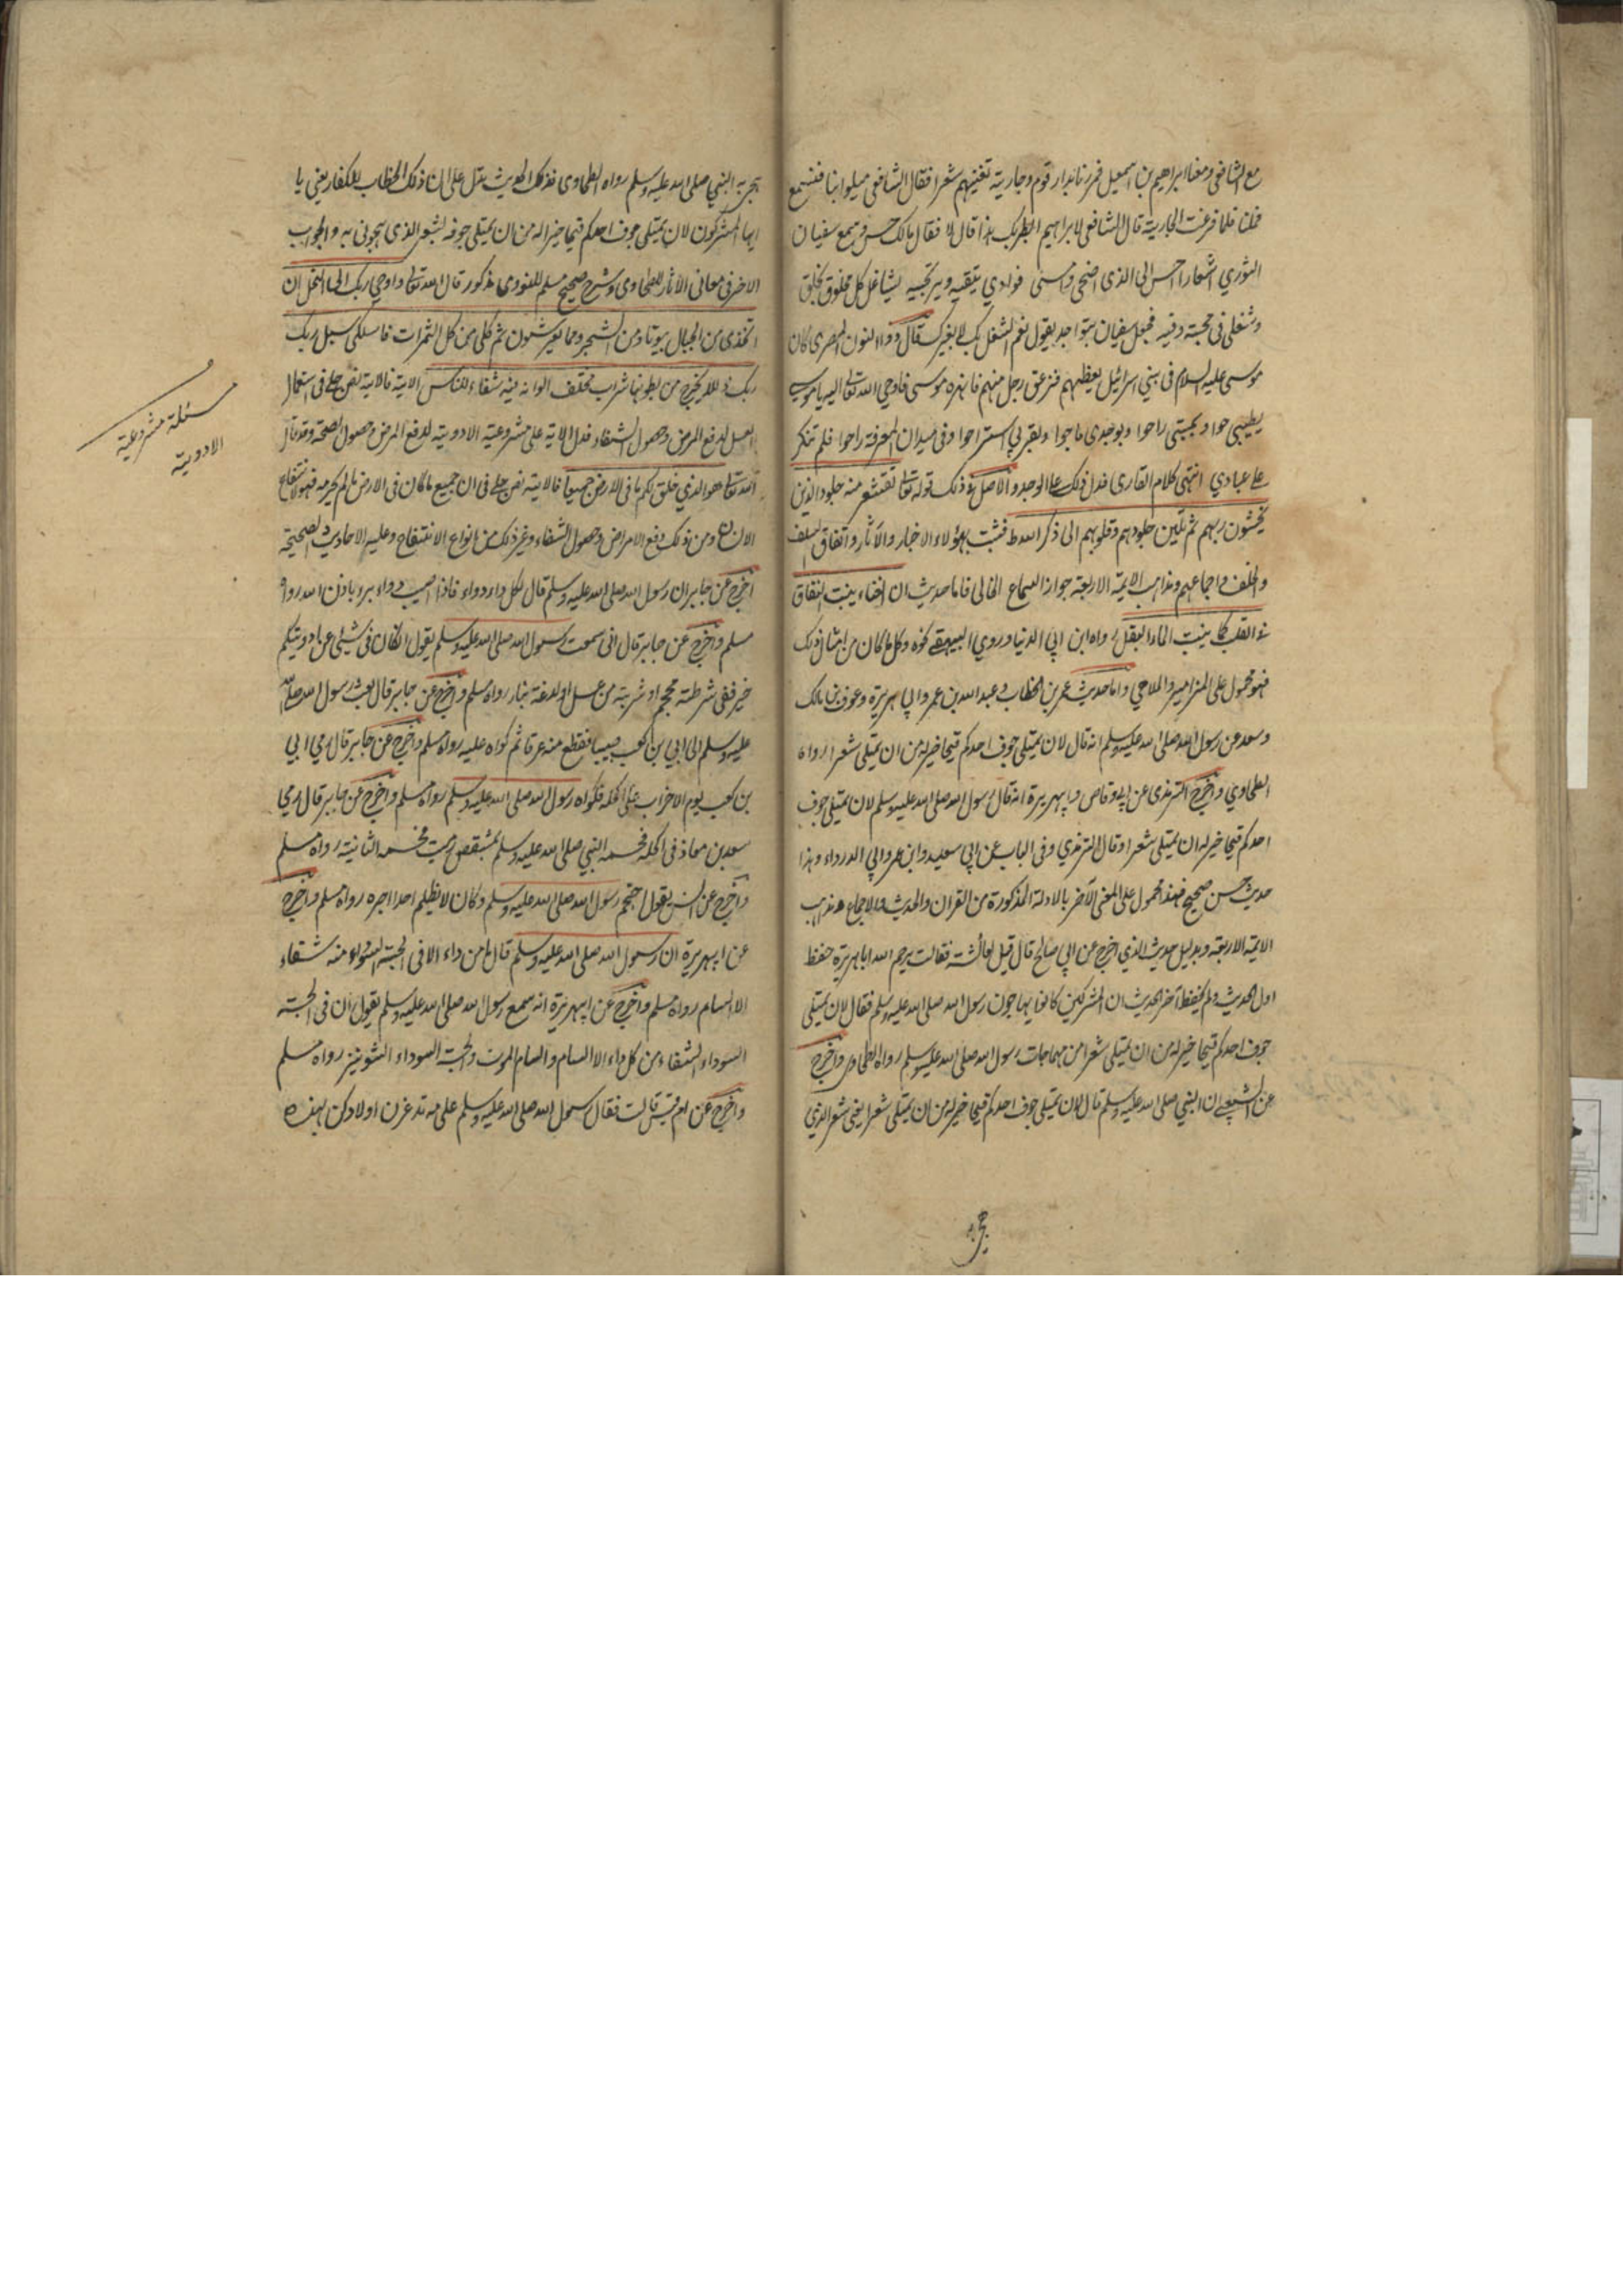 مع الشافعي ومعنا ابراهيم بن اسمعيل فمررنا بدار قوم وجارية تغنيهم شعرا فقال الشافعي ميلوا بنا فنسمع
فملنا فلما فرغت الجارية قال الشافعي لابراهيم ايطربك هذا قال لا فقال مالك حس وسمع سفيان
الثوري اشعارا احس الى الذى اضحى وامسى فوادي يتقيه ويرتجيه يشاغل كل مخلوق بخلق
وشغلى فى محبته وفيه فجعل سفيان يتواجد يقول نعم الشغل بك لا بغيرك قال ذو النون المصرى كان
موسى عليه السلام فى بني اسرائيل يعظهم فزعق رجل منهم فانهره موسى فاوحى الله تعالى اليه يا موسى
بطيبى حوا وبمحبتى راحوا وبوجدى صاحوا وبقربى استراحوا وفى ميدان المعرفة راحوا فلم تنكر
على عبادي انتهى كلام القارى فدل ذلك على الوجد والاصل فى ذلك قوله تعالى تقشعر منه جلود الذين
يخشون ربهم ثم تلين جلودهم وقلوبهم الى ذكر الله فثبت بهؤلاء الاخبار والآثار واتفاق السلف
والخلف واجماعهم ومذاهب الايمة الاربعة جواز السماع الخالى فاما حديث ان الغناء ينبت النفاق
فى القلب كما ينبت الماء البقل رواه ابن ابي الدنيا وروي البيهقي نحوه وكل ما كان من امثال ذلك
فهو محمول على المزامير والملاهي واما حديث عمر بن الخطاب وعبد الله بن عمر وابي هريرة وعوف بن مالك
وسعد عن رسول الله صلى الله عليه وسلم انه قال لان يمتلى جوف احدكم قيحا خير له من ان يمتلى شعرا رواه
الطحاوي واخرج الترمذى عن ابى وقاص وابي هريرة انه قال رسول الله صلى الله عليه وسلم لان يمتلى جوف
احدكم قيحا خير له ان يمتلى شعرا وقال الترمذي وفى الباب عن ابي سعيد وابن عمر وابي الدرداء وهذا
حديث حسن صحيح فهذا محمول على المعنى الآخر بالادلة المذكورة من القرآن والحديث والاجماع ومذاهب
الايمة الاربعة وبدليل حديث الذي اخرج عن ابي صالح قال قيل لعائشة فقالت يرحم الله ابا هريرة حفظ
اول الحديث ولم يحفظ آخر الحديث ان المشركين كانوا يهاجون رسول الله صلى الله عليه وسلم فقال لان يمتلى
جوف احدكم قيحا خير له من ان يمتلى شعرا من مهاجات رسول الله صلى الله عليه وسلم رواه الطحاوى واخرج
عن الشعبي ان النبى صلى الله عليه وسلم قال لان يمتلى جوف احدكم قيحا خير له من ان يمتلى شعرا يعني شعر الذي
هجى به النبي صلى الله عليه وسلم رواه الطحاوى فذلك الحديث يدل على ان ذلك الخطاب للكفار يعنى يا
ايها المشركون لان يمتلى جوف احدكم قيحا خير له من ان يمتلى جوفه بشعر الذى تهجونى به والجواب
الاخر فى معانى الاثار للطحاوى وشرح صحيح مسلم للنووى مذكور قال الله تعالى واوحى ربك الى النحل ان
اتخذى من الجبال بيوتا ومن الشجر ومما يعرشون ثم كلى من كل الثمرات فاسلكى سبل ربك
ربك ذللا يخرج من بطونها شراب مختلف الوانه فيه شفاء للناس الاية فالاية نص جلى فى استعمال
العسل لدفع المرض وحصول الشفاء فدل الاية على مشروعية الادوية لدفع المرض وحصول الصحة وقد قال
الله تعالى هو الذي خلق لكم ما فى الارض جميعا فالاية نص جلى فى ان جميع ما كان فى الارض ما لم يحرمه فهو لانتفاع
الانسان ومن ذلك دفع الامراض وحصول الشفاء وغير ذلك من انواع الانتفاع وعليه الاحاديث الصحيحة
اخرج عن جابر ان رسول الله صلى الله عليه وسلم قال لكل داء دواء فاذا اصيب دواء برء باذن الله رواه
مسلم واخرج عن جابر قال انى سمعت رسول الله صلى الله عليه وسلم يقول ان كان فى شئ من ادويتكم
خير ففى شرطة محجم او شربة من عسل او لدغة بنار رواه مسلم واخرج عن جابر قال بعث رسول الله صلى الله
عليه وسلم الى ابي بن كعب طبيبا فقطع منه عرقا ثم كواه عليه رواه مسلم واخرج عن جابر قال رمي ابي
بن كعب يوم الاحزاب على اكحله فكواه رسول الله صلى الله عليه وسلم رواه مسلم واخرج عن جابر قال رمى
سعد بن معاذ فى اكحله فحسمه النبي صلى الله عليه وسلم بمشقص ثم ورمت فحسمه الثانية رواه مسلم
واخرج عن انس يقول احتجم رسول الله صلى الله عليه وسلم وكان لا يظلم احدا اجره رواه مسلم واخرج
عن ابى هريرة ان رسول الله صلى الله عليه وسلم قال ما من داء الا فى الحبة السوداء منه شفاء
الا السام رواه مسلم واخرج عن ابى هريرة انه سمع رسول الله صلى الله عليه وسلم يقول ان فى الحبة
السوداء الشفاء من كل داء الا السام والسام الموت والحبة السوداء الشونيز رواه مسلم
واخرج عن ام قيس قالت فقال رسول الله صلى الله عليه وسلم على مه تدغرن اولادكن بهذه
مسئلة مشروعية
الادوية